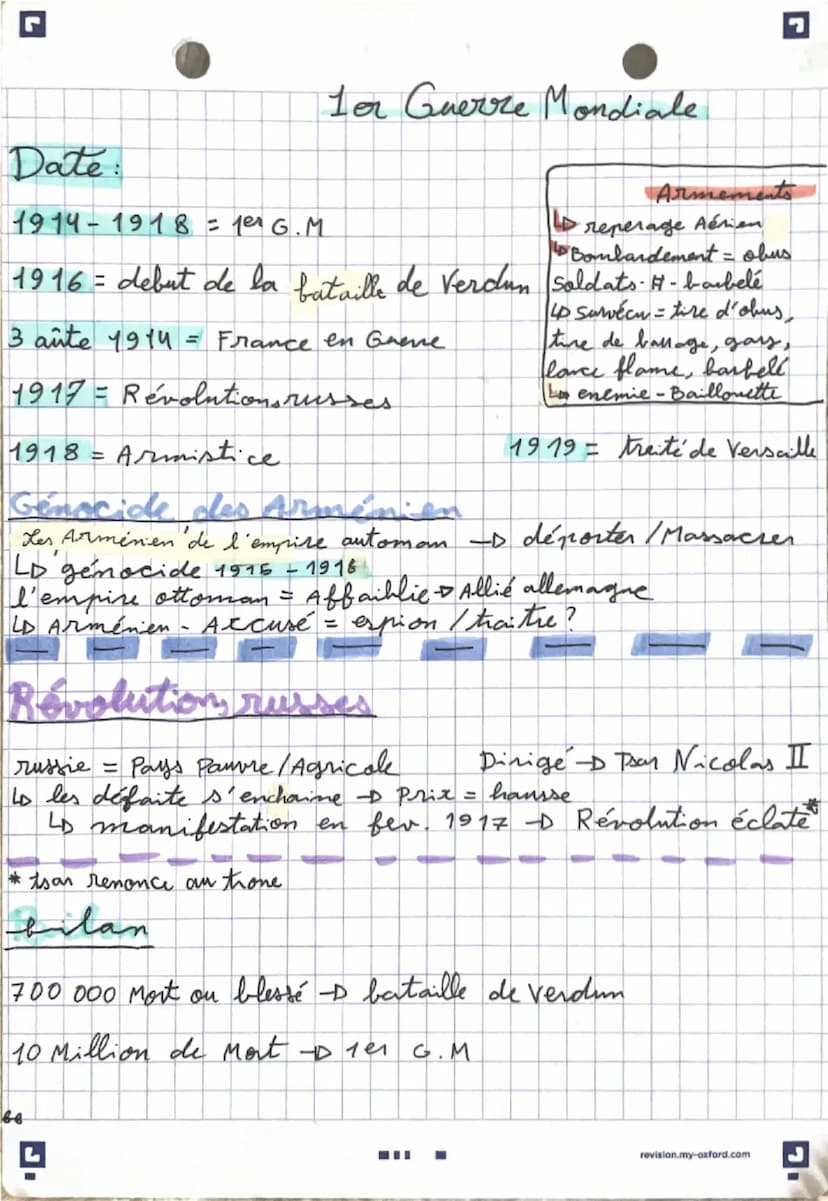 1er Guerre Mondiale
Date :
1914 - 1918 = 1er G.M
1916 = debut de la bataille de Verdun
3 aôute 1914 = France en Guerre
1917 = Révolutions russes
1918 = Armistice
Armements
↳ reperage Aérien
↳ Bombardement = obus
Soldats - - barbelé
↳ Survécu = tire d'obus,
tire de barrage, gazs,
lance flame, barbelé
↳ enemie - Baillonette
1919 = traité de Versaille
Génocide des Arménien
Les Arménien de l'empire automan → déporter / Massacrer
↳ génocide 1915 - 1916
l'empire ottoman = Affaiblie → Allié allemagne
↳ Arménien - Accusé = espion / traitre ?
Révolutions russes
russie = Pays Pauvre / Agricole Dirigé → Tsar Nicolas II
↳ les défaite s'enchaine → Prix = hausse
↳ manifestation en fev. 1917 → Révolution éclate*
* tsar renonce au trone
bilan
700 000 Mort ou blessé → bataille de Verdun
10 Million de Mort → 1er G.M
revision.my-oxford.com